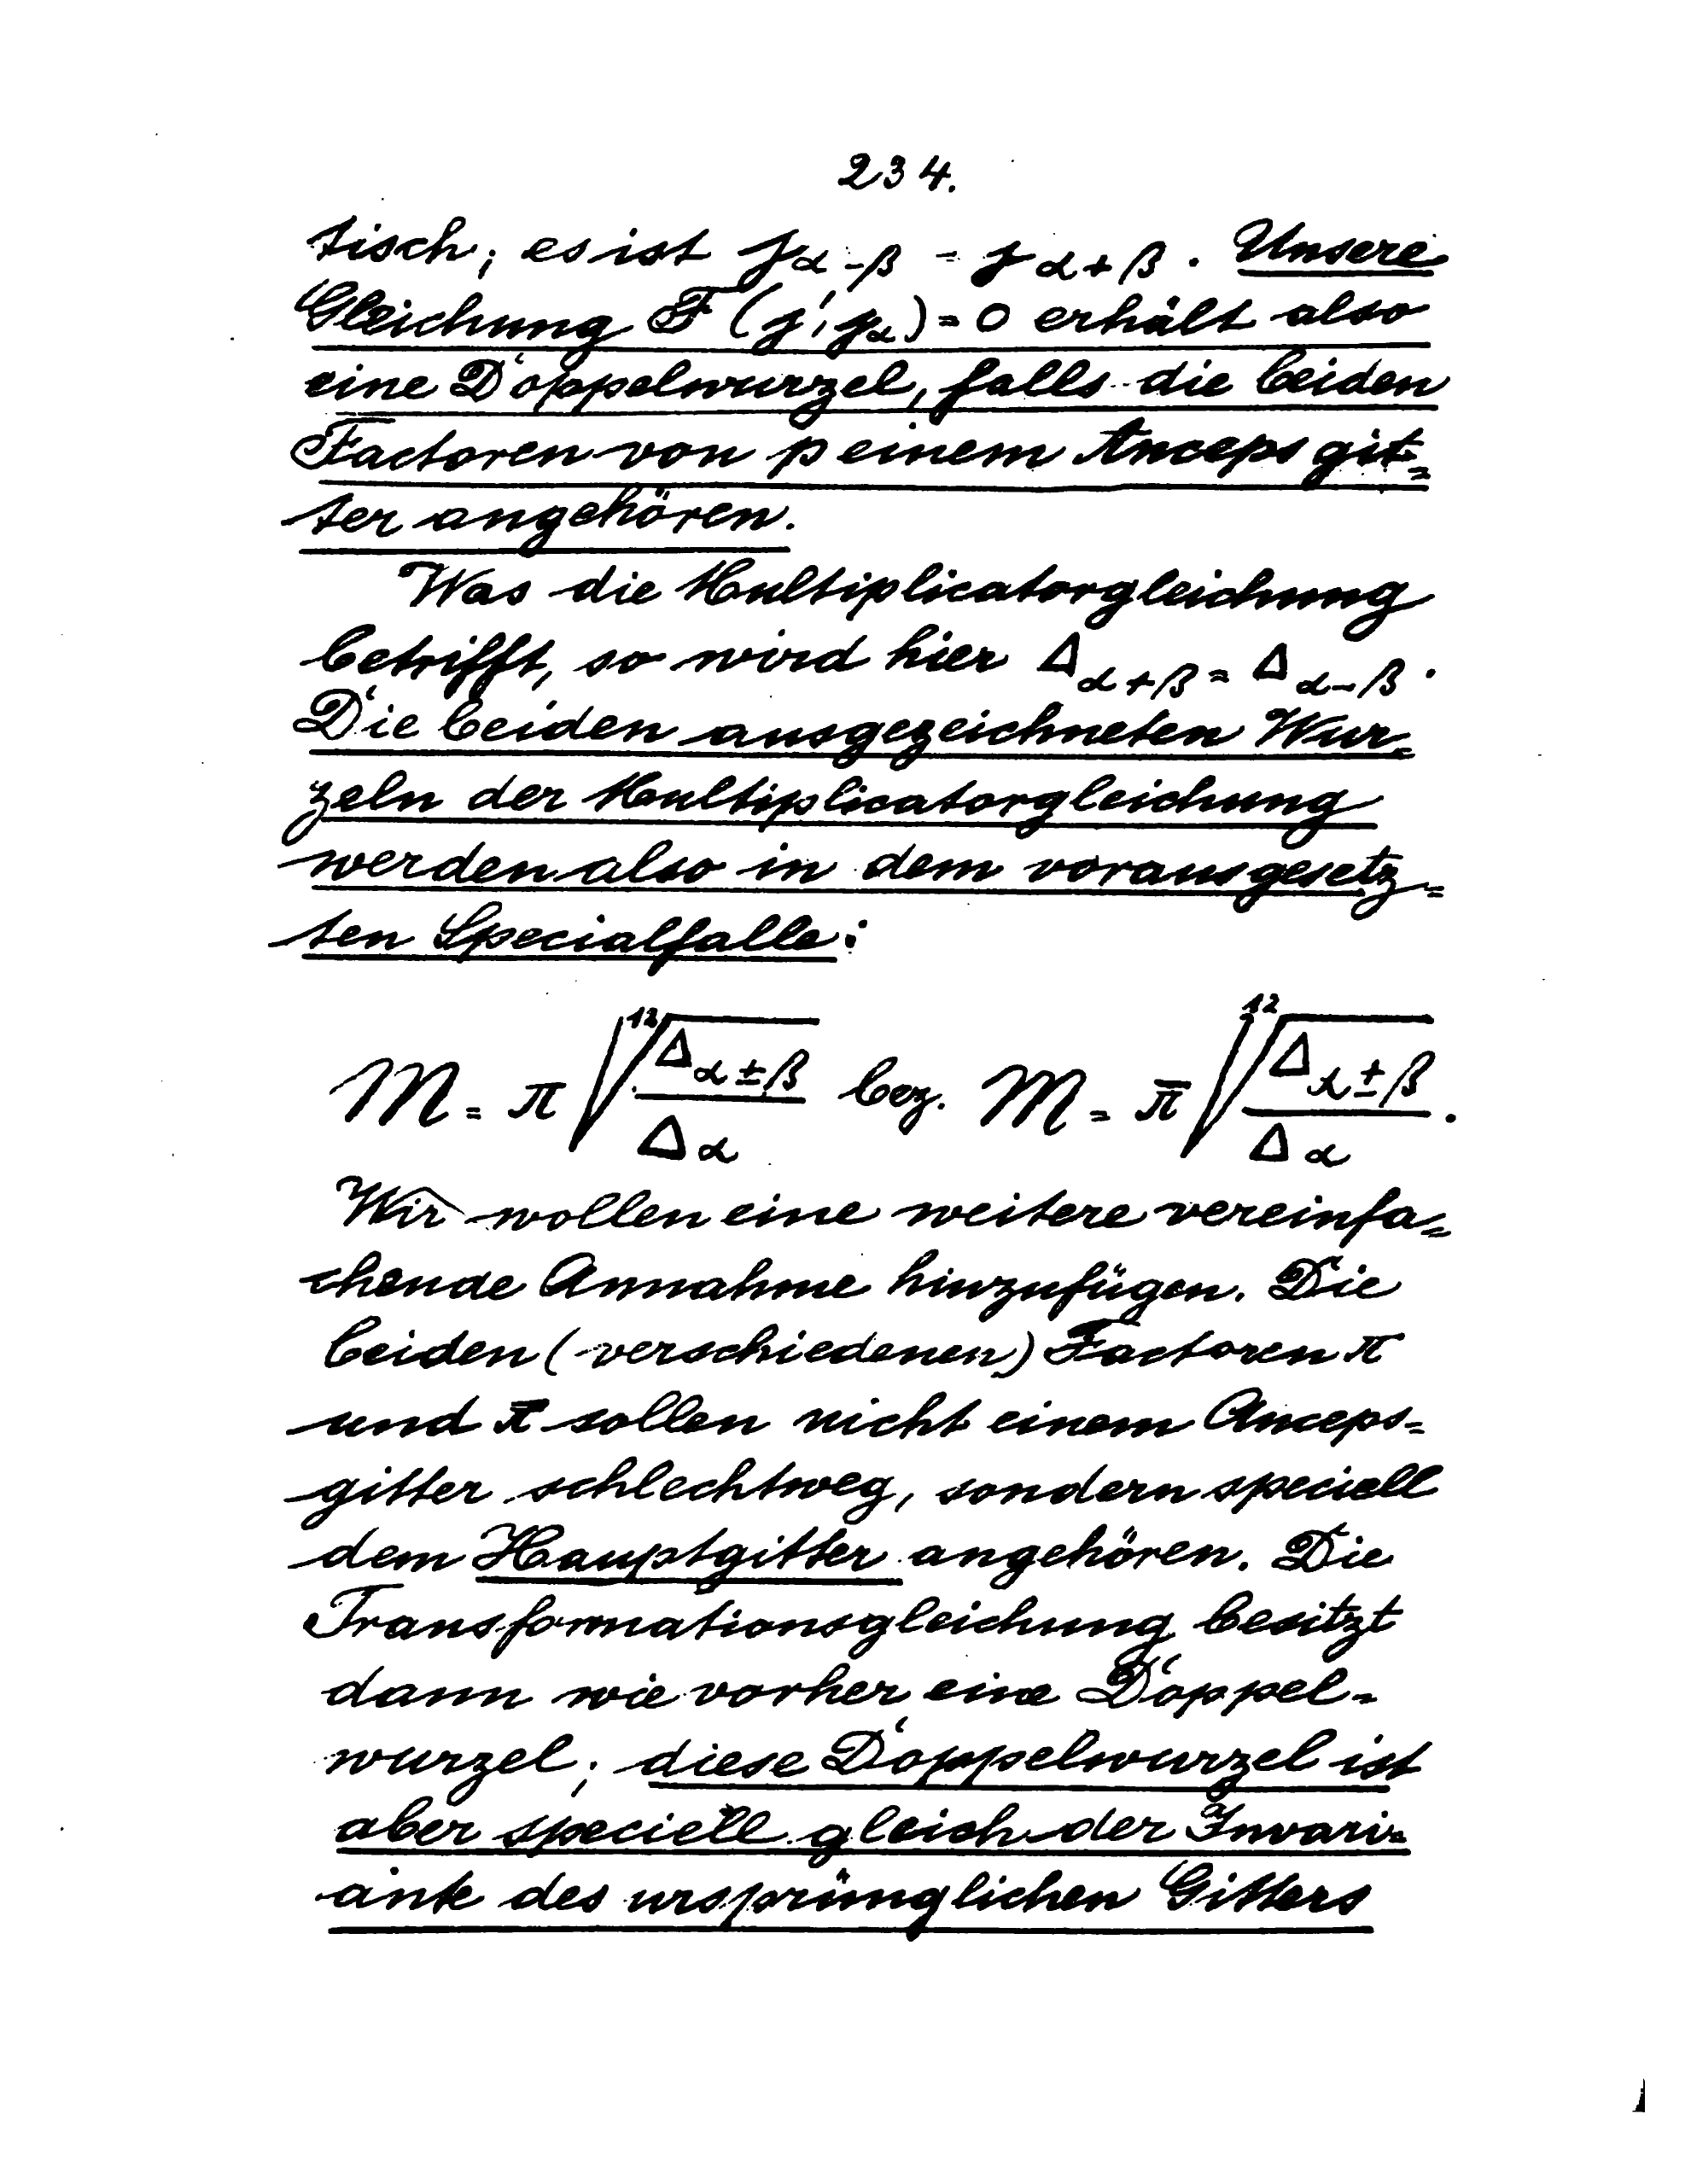 234.
tisch; es ist j_{α-β} = j_{α+β}. Unsere
Gleichung F(j', j_α) = 0 erhält also
eine Doppelwurzel, falls die beiden
Factoren von p einem Ancepsgit=
ter angehören.
Was die Multiplicatorgleichung
betrifft, so wird hier Δ_{α+β} = Δ_{α-β}.
Die beiden ausgezeichneten Wur=
zeln der Multiplicatorgleichung
werden also in dem vorausgesetz=
ten Specialfalle:
M = π \sqrt[12]{\frac{Δ_{α±β}}{Δ_α}} bez. M = \bar{π} \sqrt[12]{\frac{Δ_{α±β}}{Δ_α}}.
Wir wollen eine weitere vereinfa=
chende Annahme hinzufügen. Die
beiden (verschiedenen) Factoren π
und \bar{π} sollen nicht einem Anceps=
gitter schlechtweg, sondern speciell
dem Hauptgitter angehören. Die
Transformationsgleichung besitzt
dann wie vorher eine Doppel=
wurzel; diese Doppelwurzel ist
aber speciell gleich der Invari=
ante des ursprünglichen Gitters